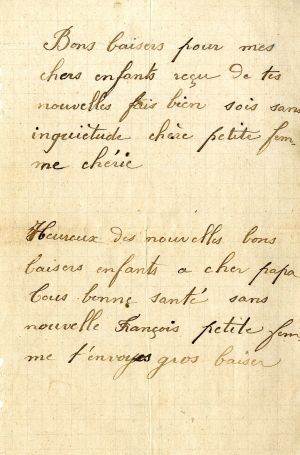 Bons baisers pour mes
chers enfants reçu de tes
nouvelles fais bien sois sans
inquiètude chère petite fem-
me chérie
Heureux des nouvelles bons
baisers enfants a cher papa
Tous bonne santé sans
nouvelle François petite fem-
me t'envoyes gros baiser